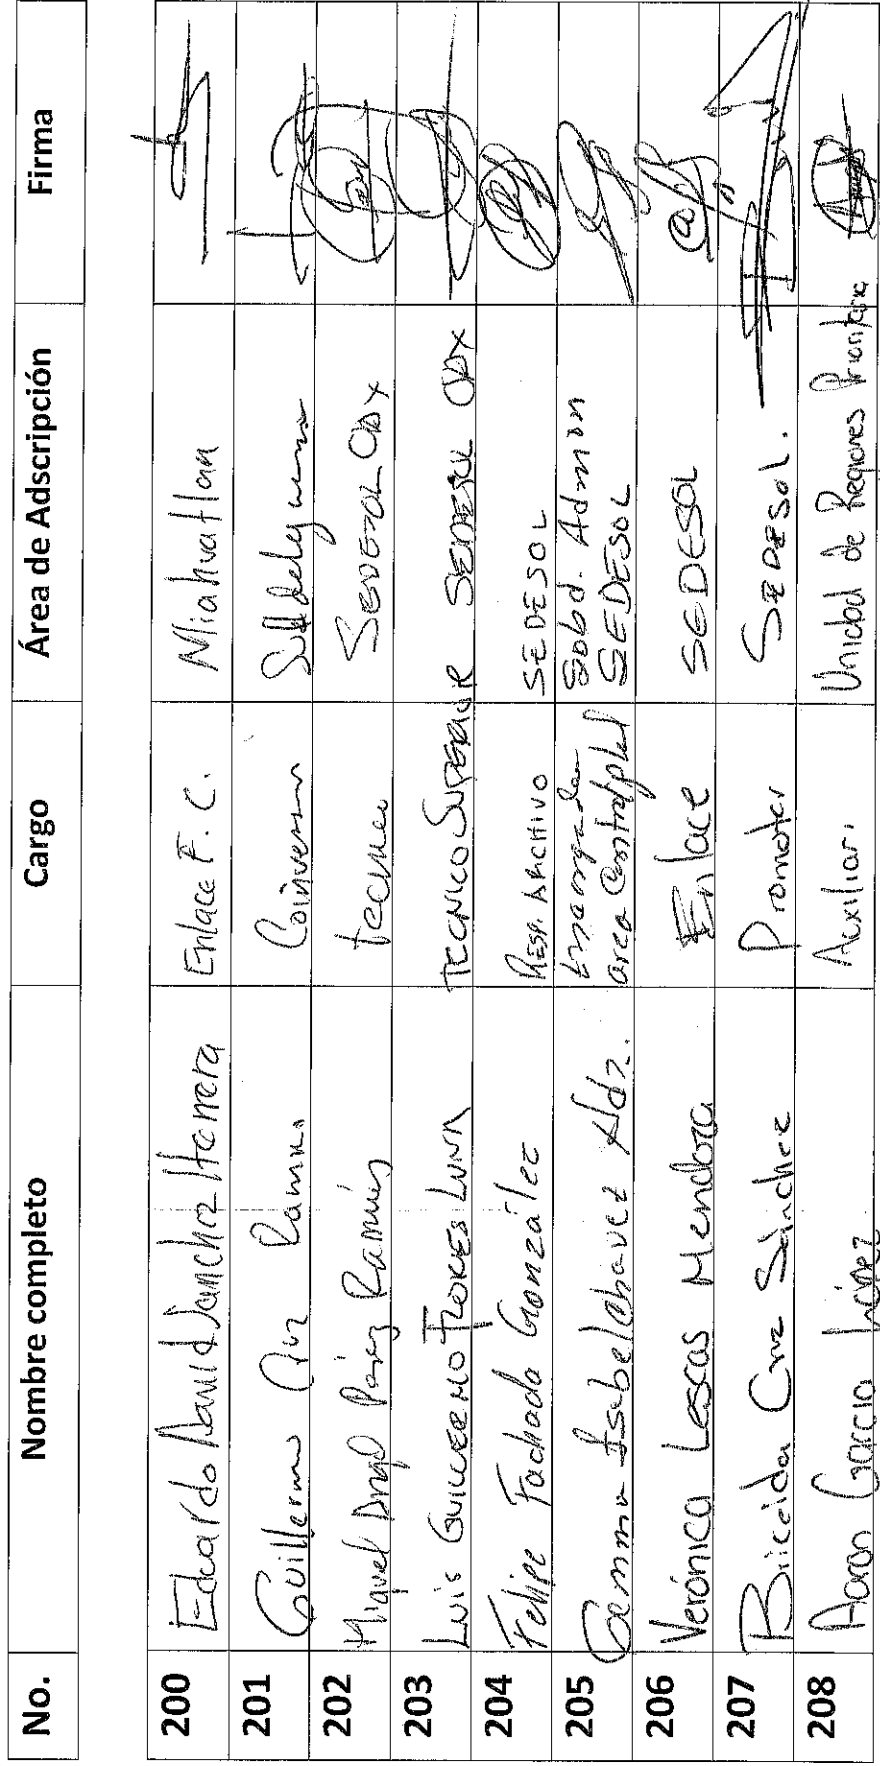 No. Nombre completo Cargo Área de Adscripción Firma
200 Eduardo David Sanchez Herrera Enlace F. C. Miahuatlan
201 Guillermo Cruz Coinversion
202 Miguel Angel Pérez Ramírez Tecnico SEDESOL OAX
203 LUIS GUILLERMO FLORES LUNA TECNICO SUPERIOR SEDESOL OAX
204 Felipe Fachada González RESP. ARCHIVO SEDESOL
205 Gemma Isabel Chavez Hdz. Encargada Subd. Admon
area SEDESOL
206 Verónica Lascas Mendoza Enlace SEDESOL
207 Briceida Cruz Sánchez Promotor SEDESOL.
208 Aaron Garcia López Auxiliar. Unidad de Regiones Prioritaria